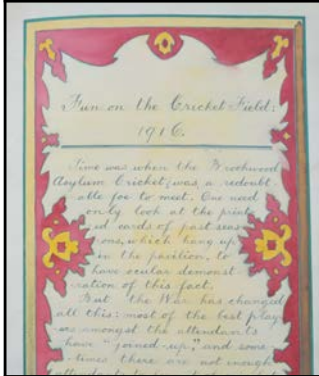 Fun on the Cricket Field:
1916.
Time was when the Brookwood
Asylum Cricket, was a redoubt-
able foe to meet. One need
only look at the print
ed cards of past seas
ons, which hang up
in the pavilion, to
have ocular demonst
ration of this fact.
But the War has changed
all this: most of the best play
ers amongst the attendants
have "joined up," and some-
times there are not enough
attendants